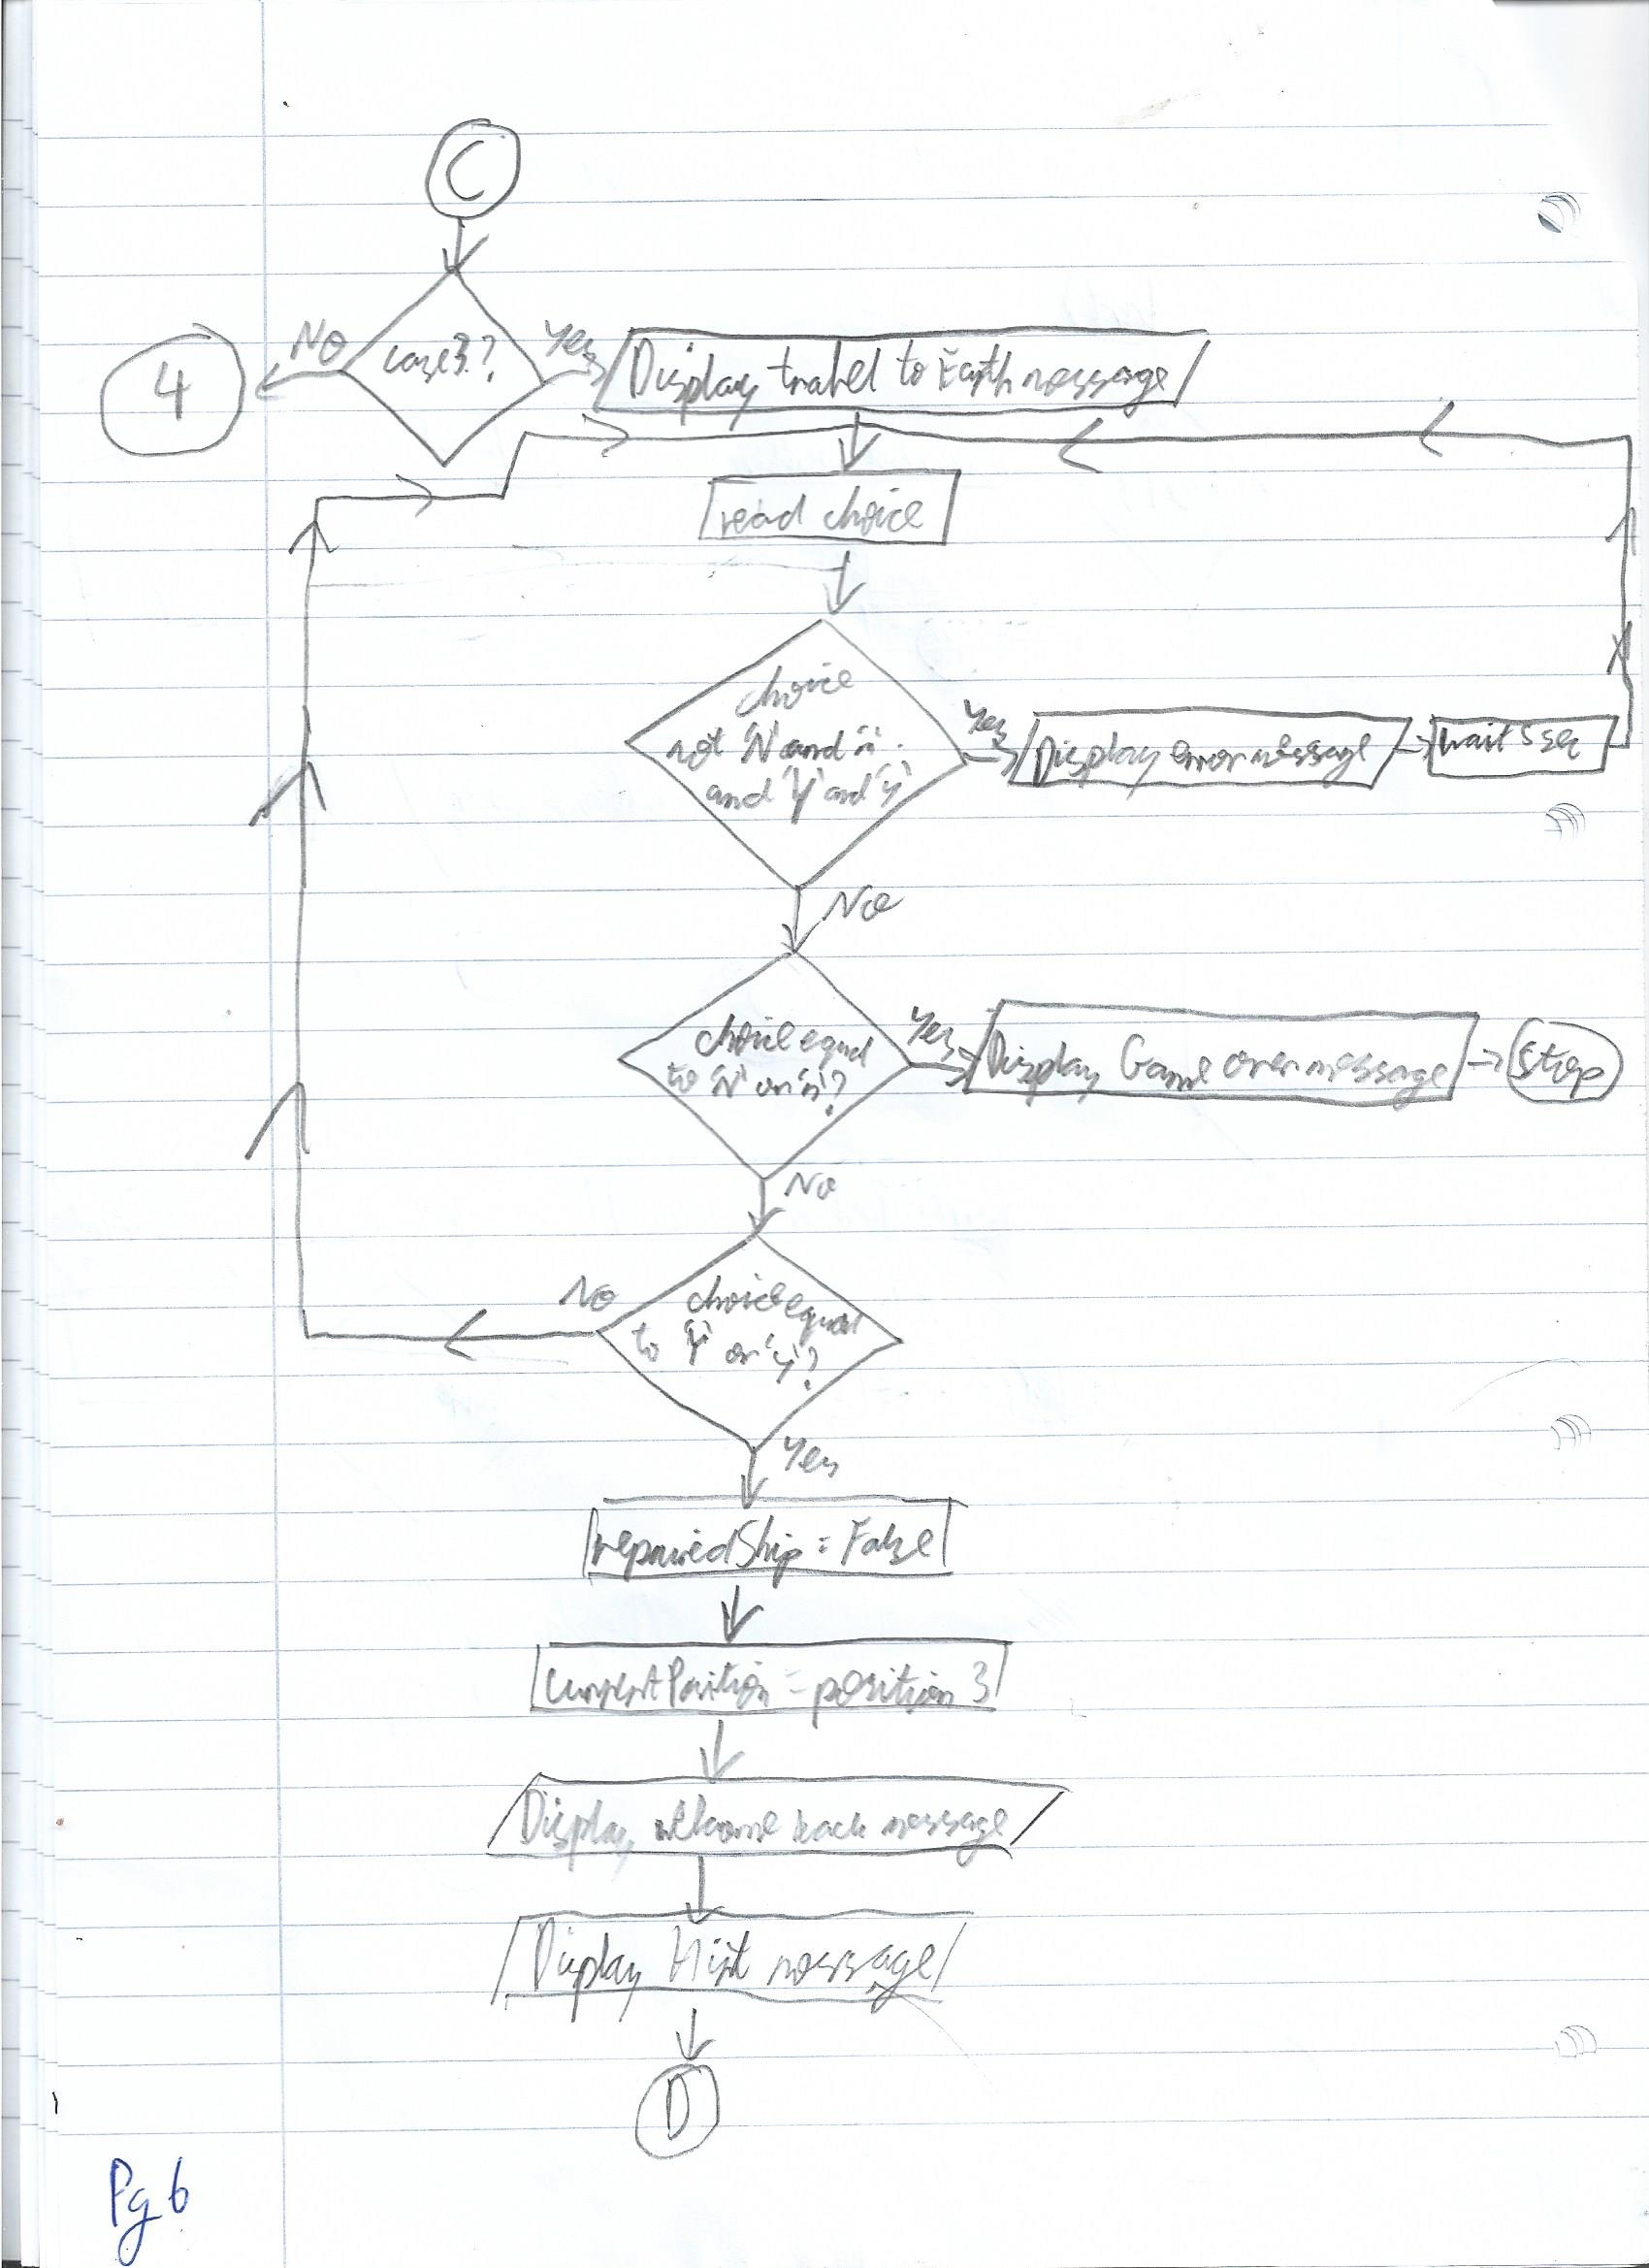 C
case 3?
No
4
Yes
Display travel to Earth message
read choice
choice
not 'N' and 'n'
and 'Y' and 'y'
Yes
Display error message
wait 5 sec
No
choice equal
to 'N' or 'n'?
Yes
Display Game over message
Stop
No
choice equal
to 'Y' or 'y'?
No
Yes
repairedShip = False
currentPosition = position 3
Display welcome back message
Display Hint message
D
Pg 6